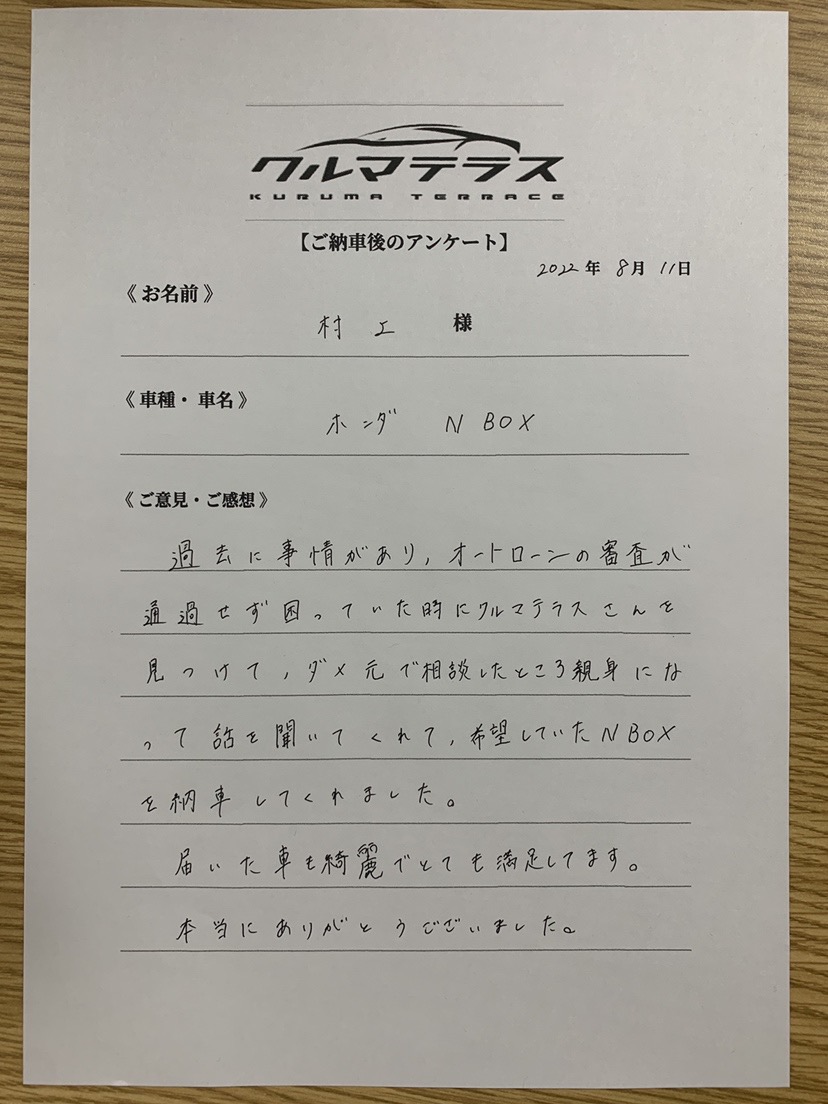 クルマテラス
KURUMA TERRACE
【ご納車後のアンケート】
2022年 8月 11日
《お名前》
村上 様
《車種・車名》
ホンダ N BOX
《ご意見・ご感想》
過去に事情があり,オートローンの審査が
通過せず困っていた時にクルマテラスさんを
見つけて,ダメ元で相談したところ親身にな
って話を聞いてくれて,希望していたN BOX
を納車してくれました。
届いた車も綺麗でとても満足してます。
本当にありがとうございました。